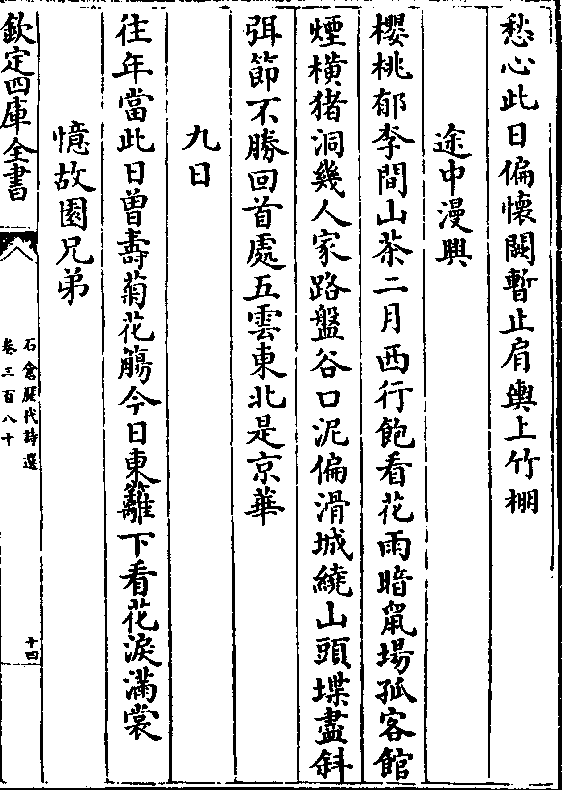 愁心此日偏懷闕暫止肩輿上竹棚
途中漫興
櫻桃郁李間山茶二月西行飽看花雨暗鼠場孤客館
煙橫猪洞幾人家路盤谷口泥偏滑城繞山頭堞盡斜
弭節不勝回首處五雲東北是京華
九日
往年當此日曽壽菊花觴今日東籬下看花淚滿裳
憶故園兄弟
欽定四庫全書
石倉歴代詩選
卷三百八十
十四